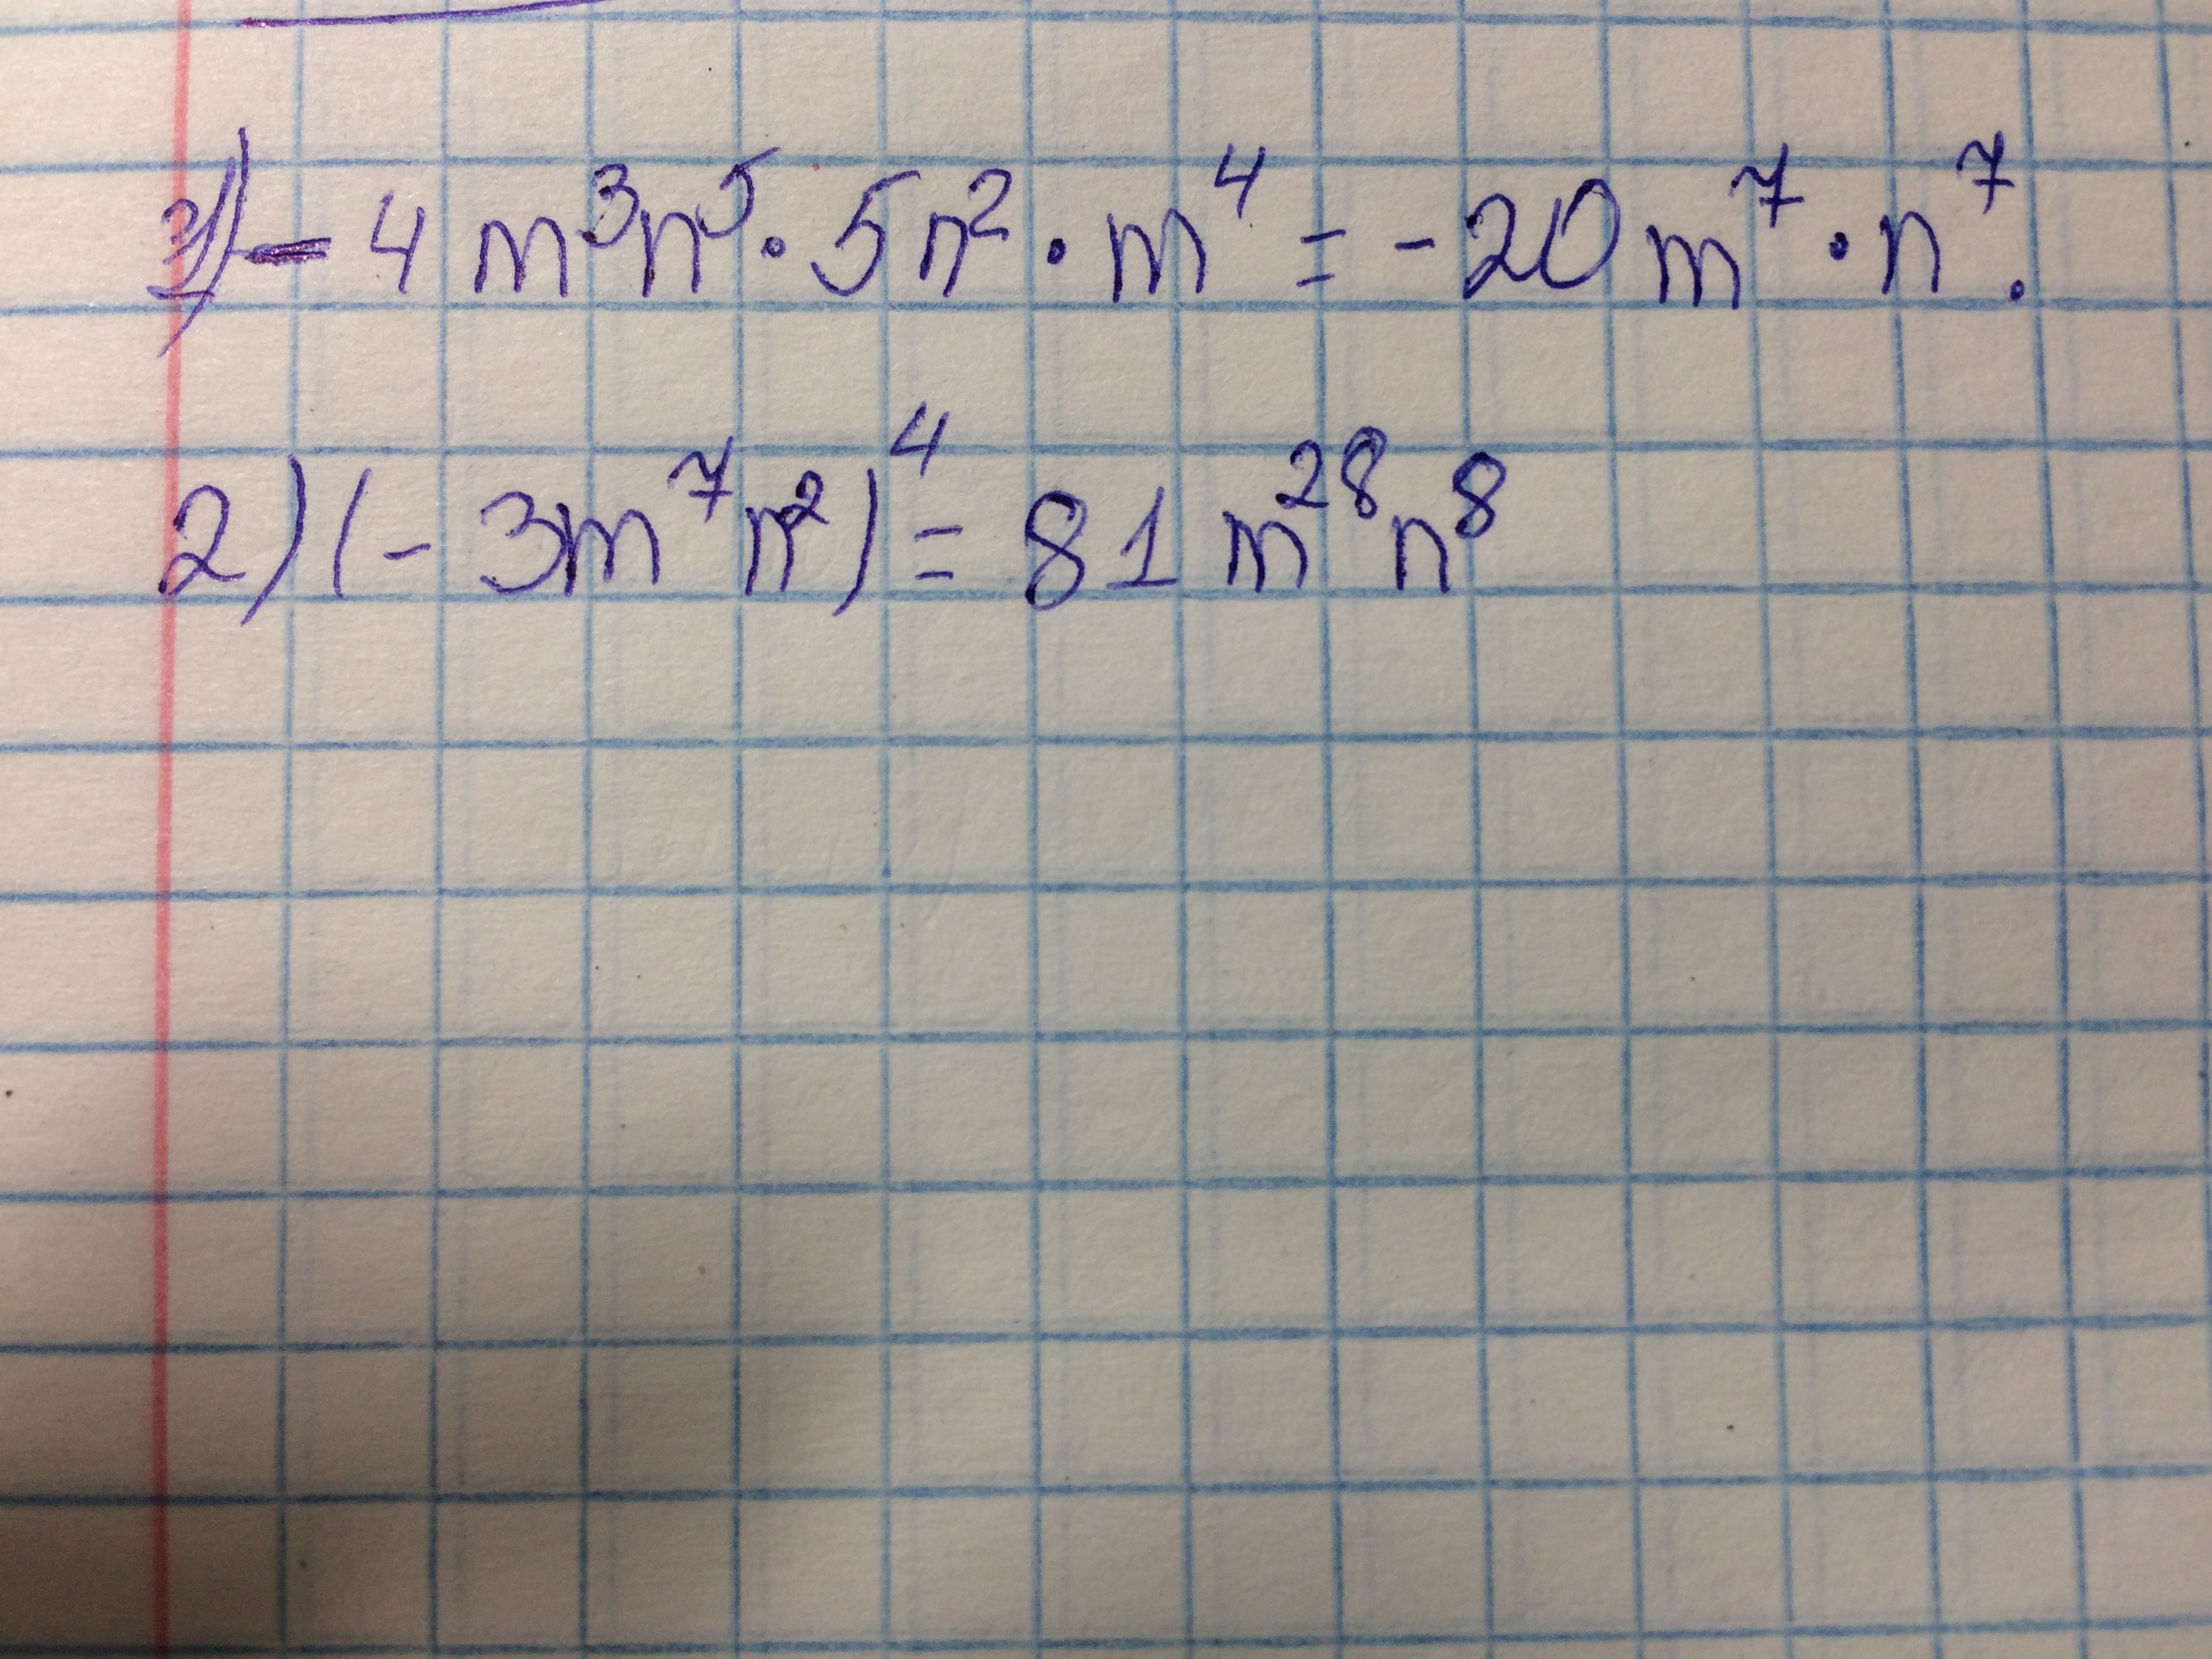 1) - 4 m³n⁵ · 5n² · m⁴ = - 20 m⁷ · n⁷.
2) (- 3m⁷n²)⁴ = 81 m²⁸n⁸